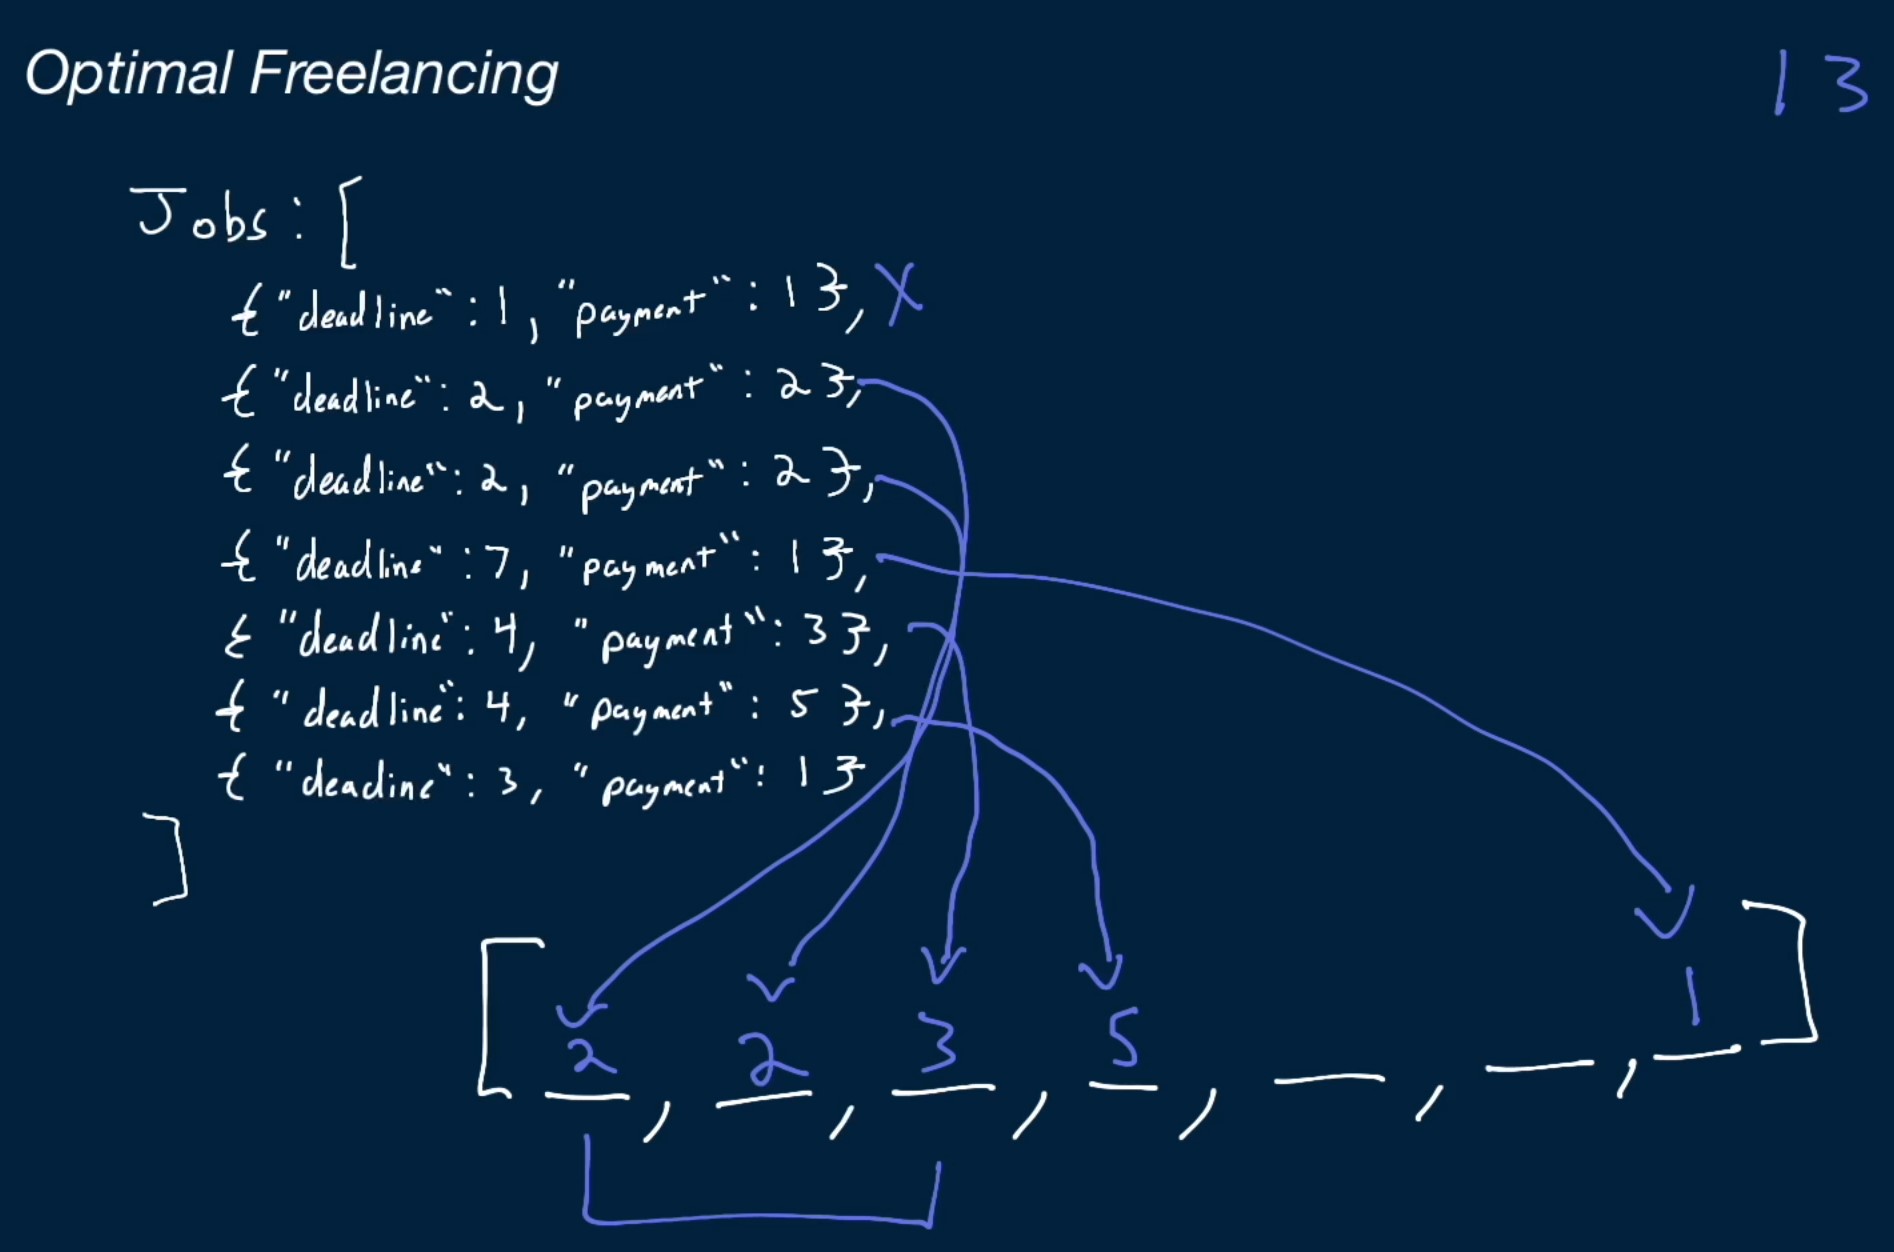 Optimal Freelancing
13
Jobs: [
{"deadline": 1, "payment": 1},X
{"deadline": 2, "payment": 2},
{"deadline": 2, "payment": 2},
{"deadline": 7, "payment": 1},
{"deadline": 4, "payment": 3},
{"deadline": 4, "payment": 5},
{"deadine": 3, "payment": 1}
]
[2, 2, 3, 5, __, __, 1]